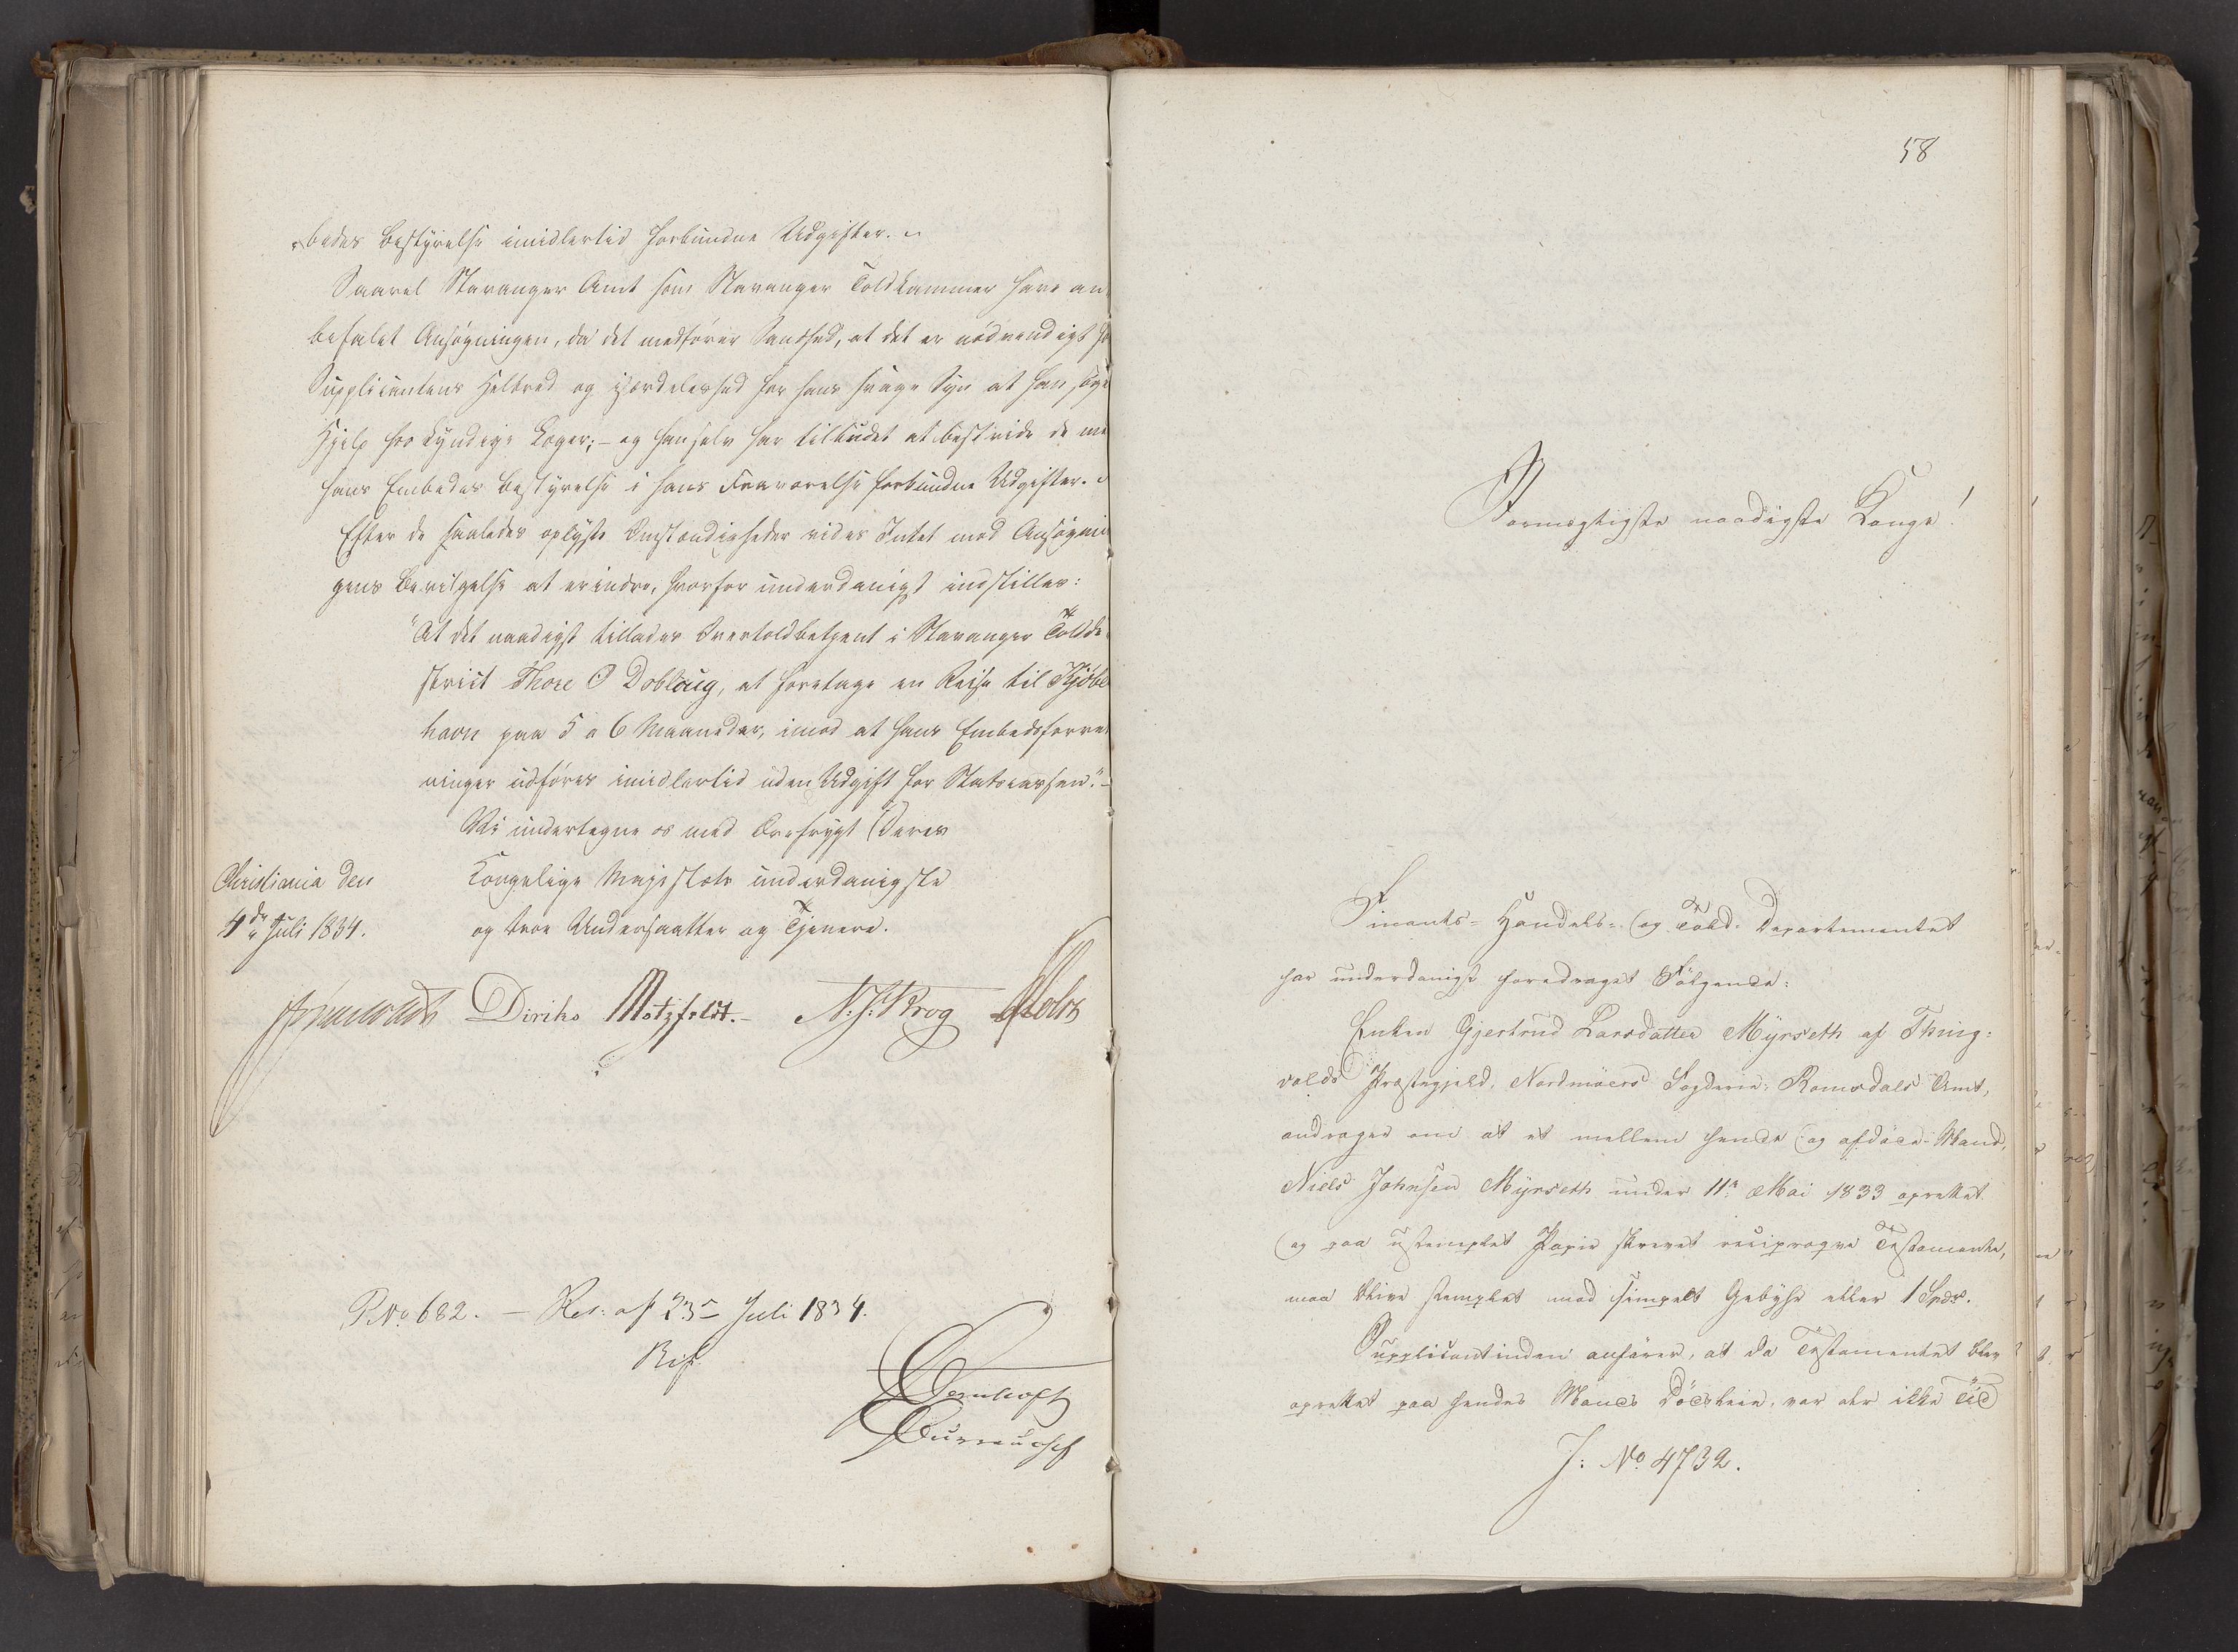 bedes Bestyrelse imidlertid forbundne Udgifter.
Saavel Stavanger Amt som Stavanger Toldkammer have an
befalet Ansøgningen, da det medfører Sandhed, at det er nødvendigt for
Supplicantens Helbred og isærdeleshed for hans svage Syn at han søger
Hjelp hos kyndige Læger; - og han selv har tilbudet at bestride de med
hans Embedes Bestyrelse i hans Fraværelse forbundne Udgifter.
Efter de saaledes oplyste Omstændigheder vides Intet mod Ansøgnin
gens Bevilgelse at erindre, hvorfor underdanigst indstilles:
"At det naadigst tillades Overtoldbetjent i Stavanger Toldde
strict Thore O Dobloug, at foretage en Reise til Kjöben
havn paa 5 a 6 Maaneder, imod at hans Embedsforret
ninger udføres imidlertid uden Udgift for Statscassen."-
Vi undertegne os med Ærefrygt Deres
Kongelige Majestæts underdanigste
og troe Undersaatter og Tjenere.
Christiania den
4de Juli 1834.
Diriks Motzfeldt. N. J. Krog
P.No 682. - Res: af 23de Juli 1834.
58
Stormægtigste naadigste Konge!
Finants- Handels- og Told- Departementet
har underdanigst foredraget Følgende:
Enken Gjertrud Larsdatter Myrseth af Thing-
volds Præstegjeld, Nordmöers Fogderie, Romsdals Amt,
andrager om at et mellem hende og afdøde Mand,
Niels Johnsen Myrseth under 11te Mai 1833 oprettet
og paa ustemplet Papir skrevet reciproqve Testamente,
maa blive stemplet mod simpelt Gebyhr eller 1 Spdr.
Supplicantinden anfører, at da Testamentet blev
oprettet paa hendes Mands Dødsleie, var der ikke Tid
J: No 4732.